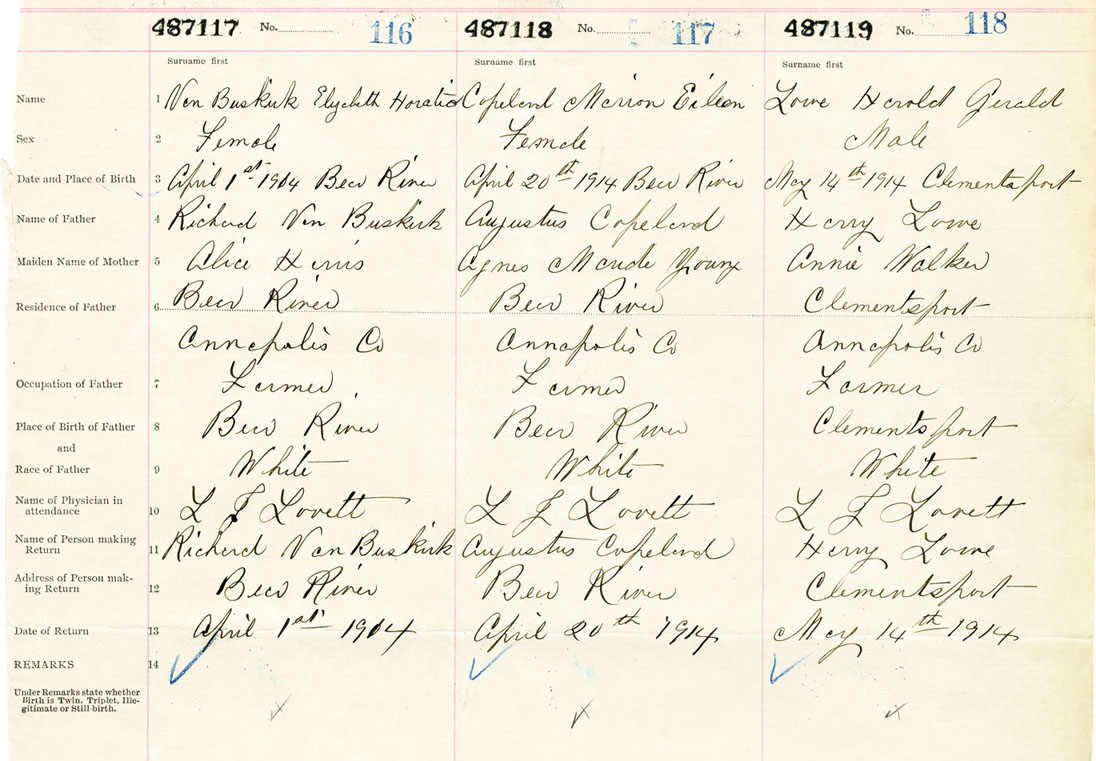 487117 No. 116 487118 No. 117 487119 No. 118
Surname first Surname first Surname first
Name 1 Van Buskirk Elizabeth Horatio Copeland Marion Eileen Lowe Harold Gerald
Sex 2 Female Female Male
Date and Place of Birth 3 April 1st 1904 Bear River April 20th 1914 Bear River May 14th 1914 Clementsport
Name of Father 4 Richard Van Buskirk Augustus Copeland Harry Lowe
Maiden Name of Mother 5 Alice Harris Agnes Maude Young Annie Walker
Residence of Father 6 Bear River Bear River Clementsport
Annapolis Co Annapolis Co Annapolis Co
Occupation of Father 7 Farmer Farmer Farmer
Place of Birth of Father 8 Bear River Bear River Clementsport
and
Race of Father 9 White White White
Name of Physician in
attendance 10 L J Lovett L J Lovett L J Lovett
Name of Person making
Return 11 Richard Van Buskirk Augustus Copeland Harry Lowe
Address of Person mak-
ing Return 12 Bear River Bear River Clementsport
Date of Return 13 April 1st 1904 April 20th 1914 May 14th 1914
REMARKS 14
Under Remarks state whether
Birth is Twin, Triplet, Ille-
gitimate or Still-birth.